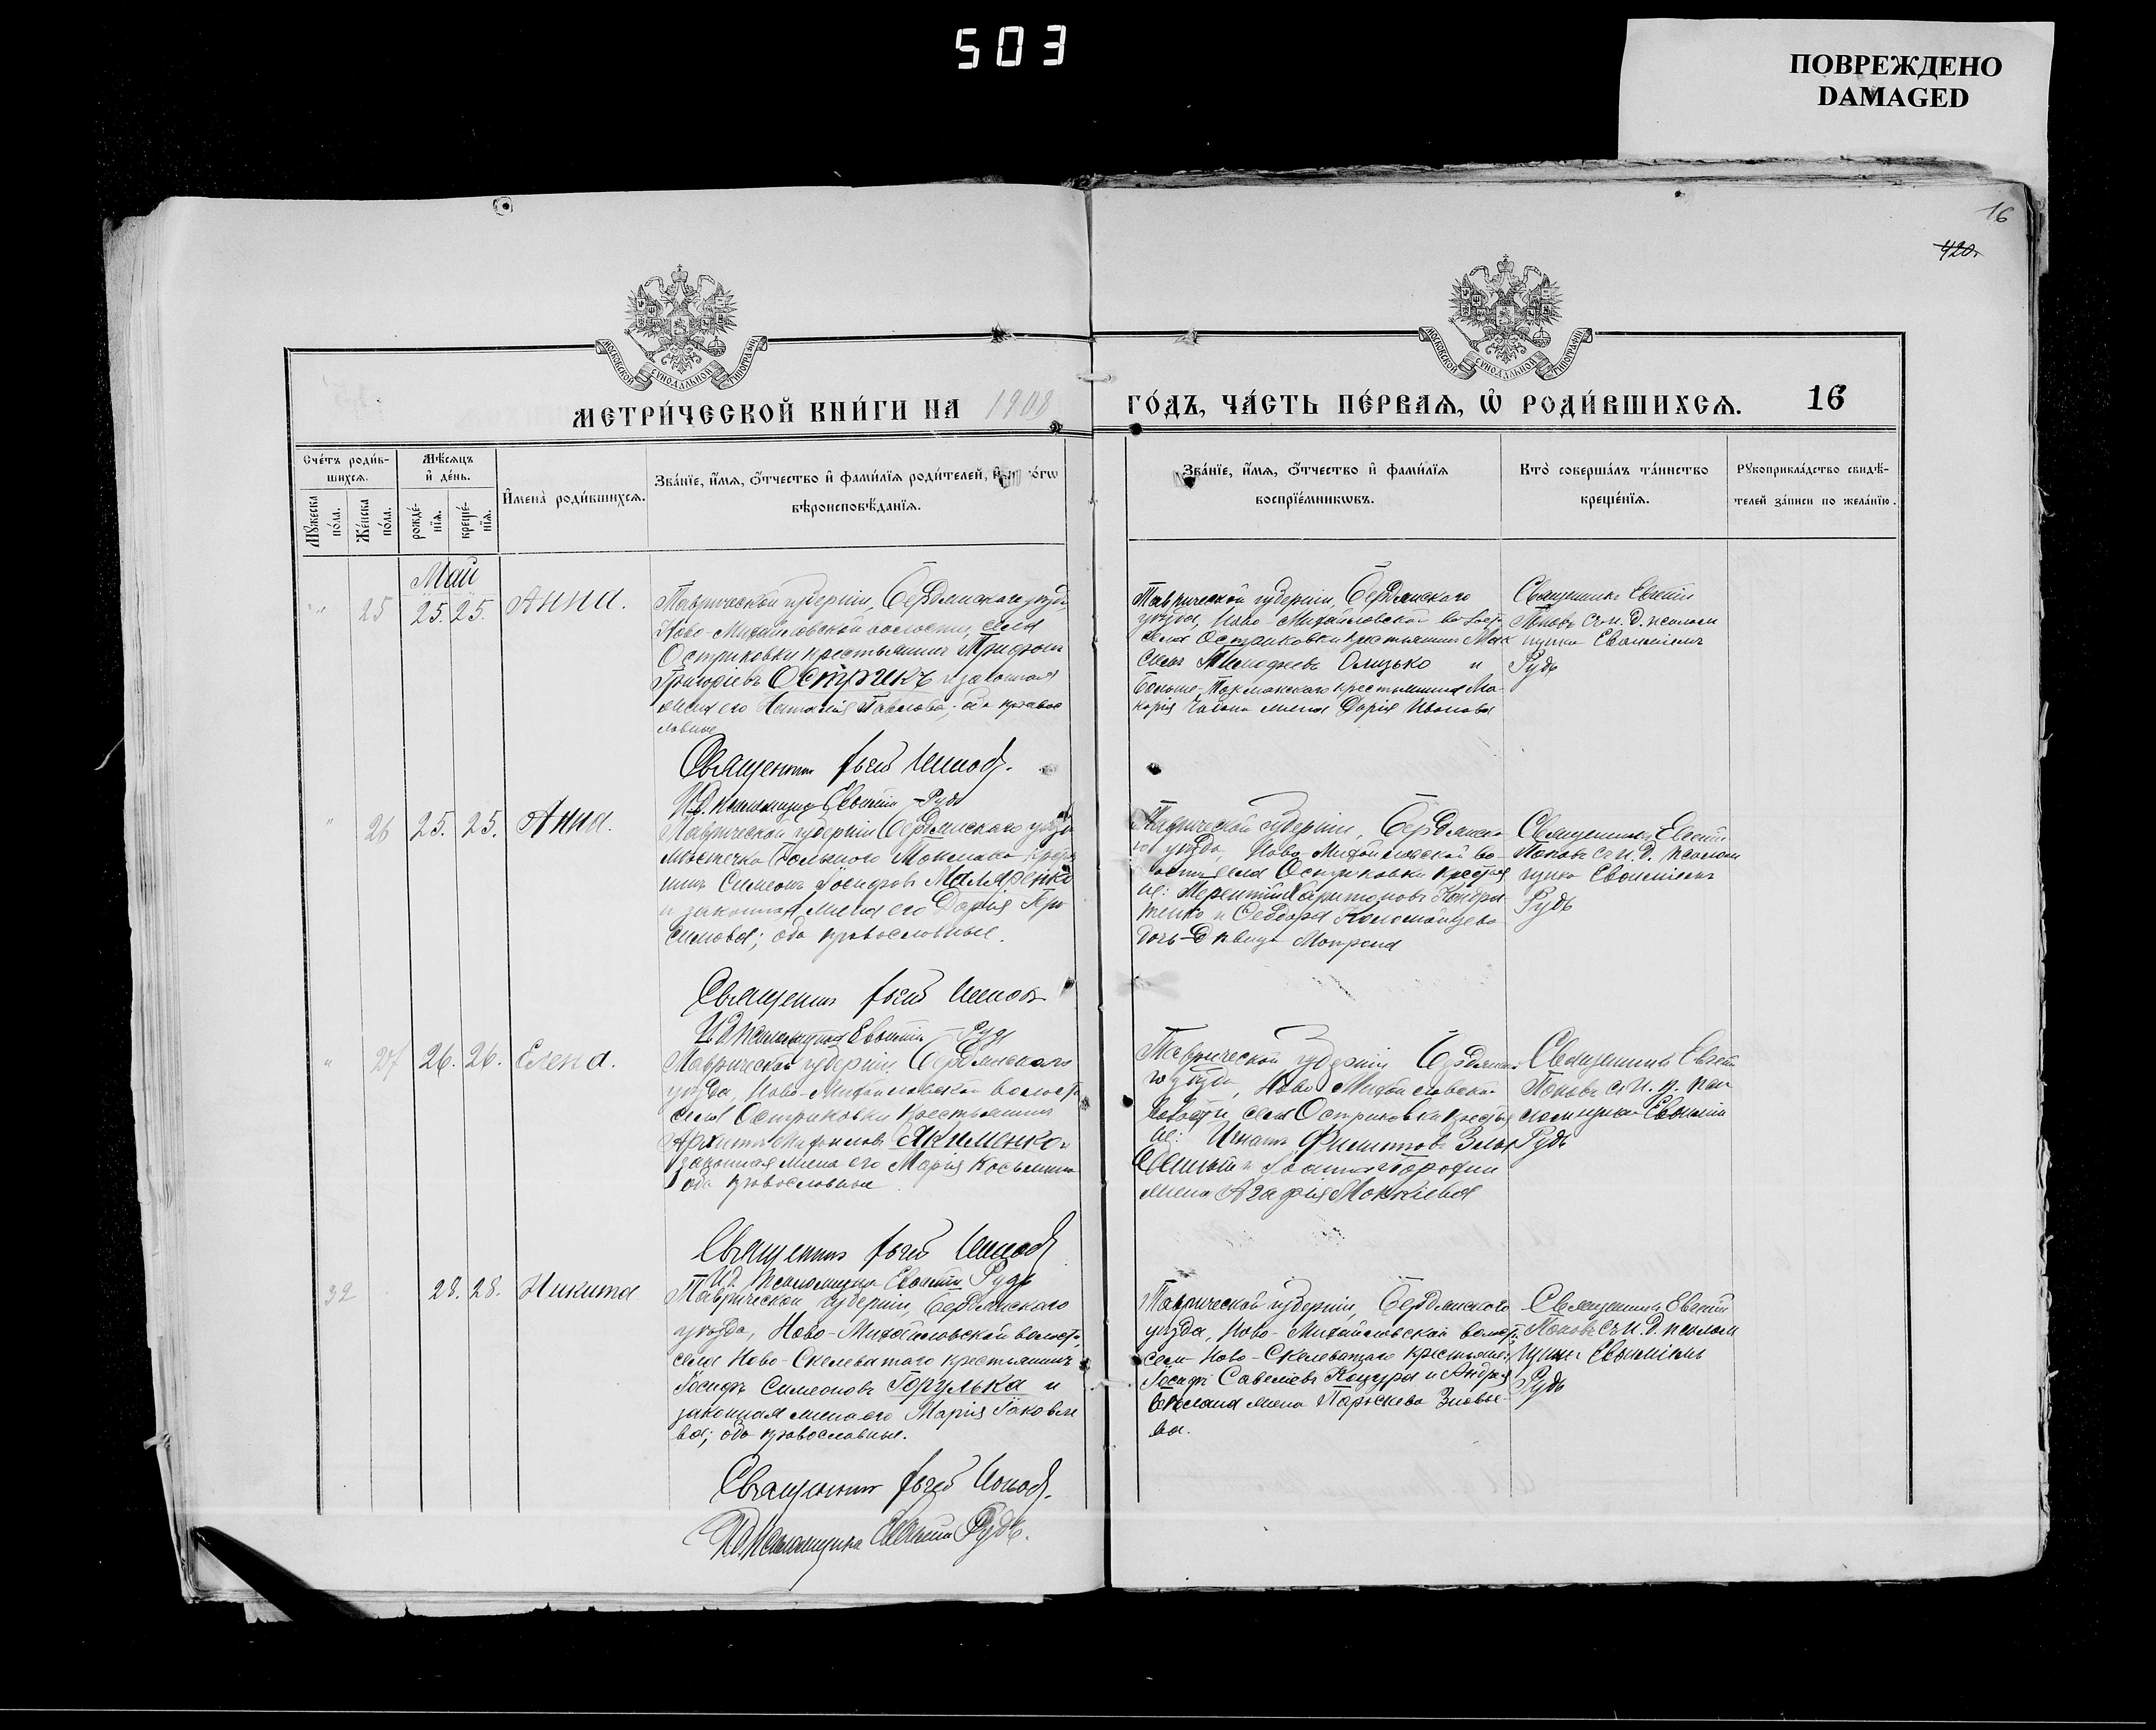 503
ПОВРЕЖДЕНО
DAMAGED
16
420
МОСКОВСКОЙ СѴНОДАЛЬНОЙ ТИПОГРАФІИ
МОСКОВСКОЙ СѴНОДАЛЬНОЙ ТИПОГРАФІИ
МЕТРИ́ЧЕСКОЙ КНИ́ГИ НА 1908
ГО́ДЪ, ЧА́СТЬ ПЕ́РВАѦ, Ѡ҆ РОДИ́ВШИХСѦ. 16
Сче́тъ роди́в-
шихсѧ.
Мꙋ́жеска по́ла.
Же́нска по́ла.
Мѣ́сѧцъ
и҆ де́нь.
рожде́-нїѧ.
креще́-нїѧ.
И҆мена̀ роди́вшихсѧ.
Зва́нїе, и҆́мѧ, о҆́тчество и҆ фами́лїѧ роди́телей, и҆
вѣроисповѣ́данїѧ.
Зва́нїе, и҆́мѧ, о҆́тчество и҆ фами́лїѧ
воспрїе́мникѡвъ.
Кто̀ соверша́лъ та́инство
креще́нїѧ.
Рꙋкоприкла́дство свидѣ́-
телей за́писи по жела́нїю.
Май
" 25 25. 25. Анна.
Таврической губерніи, Бердянскаго уѣзда
Ново-Михайловской волости, села
Остриковки крестьянинъ Трифонъ
Григоріевъ Острикъ и законная
жена его Наталія Павлова; оба правос
лавные
Священникъ Евгеній Поповъ.
И.д. псаломщика Евѳимій Рудь
Таврической губерніи, Бердянскаго
уѣзда, Ново-Михайловской волости
села Остриковки крестьянинъ Мак
симъ Тимофеевъ Олизько и
Больше-Токмакскаго крестьянина Ма-
карія жена Дарія Иванова
Священникъ Евгеній
Поповъ съ и. д. псалом
щика Евѳиміемъ
Рудь
" 26 25. 25. Анна.
Таврической губерніи Бердянскаго уѣзда
мѣстечка Большого Токмака крестья
нинъ Симеонъ Іосифовъ Маляренко
и законная жена его Дарія Гера
симова; оба православные.
Священникъ Евгеній Поповъ
И.д. псаломщика Евѳимій Рудь
Таврической губерніи, Бердянска
го уѣзда Ново-Михайловской во-
лости села Остриковки крестья
не: Терентій Харитоновъ Кондра
тенко и Ѳеодора Коломойцева
дочь-дѣвица Матрена
Священникъ Евгеній
Поповъ съ И. Д. псалом
щика Евѳиміемъ
Рудь
" 27 26. 26. Елена.
Таврической губерніи Бердянскаго
уѣзда, Ново-Михайловской волости
села Остриковки крестьянинъ
Акименко и
законная жена его Марія Косьмина
оба православные
Священникъ Евгеній Поповъ
И.д. псаломщика Евѳимій Рудь
Таврической губерніи Бердянска
го уѣзда, Ново-Михайловской
волости, села Остриковки крестья
не: Игнатъ Филиповъ
жена Агафія
Священникъ Евгеній
Поповъ съ И. д. пса
ломщикомъ Евѳимій
Рудь
32 28. 28. Никита
Таврической губерніи, Бердянскаго
уѣзда, Ново-Михайловской волости,
села Ново-Скелеватаго крестьянинъ
Іосифъ Симеоновъ Горулька и
законная жена его Марія Іаковле
ва; оба православные.
Священникъ Евгеній Поповъ.
И.д. псаломщика Евѳимій Рудь.
Таврической губерніи, Бердянскаго
уѣзда, Ново-Михайловской волости,
села Ново-Скелеватаго крестьяне:
Іосифъ Савеліевъ Коцура и Андрея
жена Параскева Зиновье-
ва.
Священникъ Евгеній
Поповъ съ И. Д. псалом
щика Евѳиміемъ
Рудь